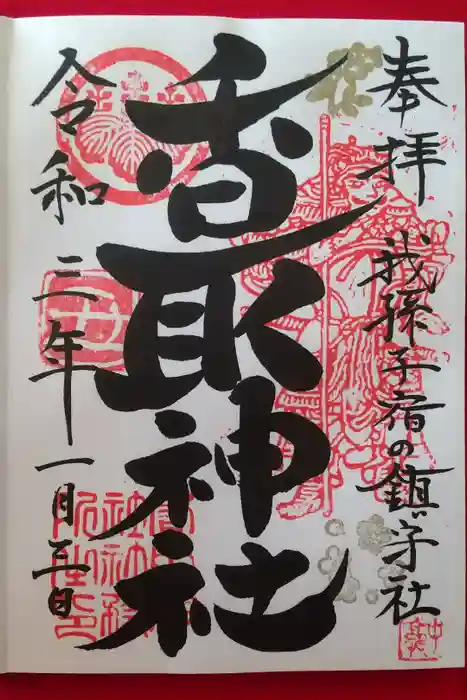 奉拝
我孫子宿の鎮守社
香取神社
令和三年一月三日
丑